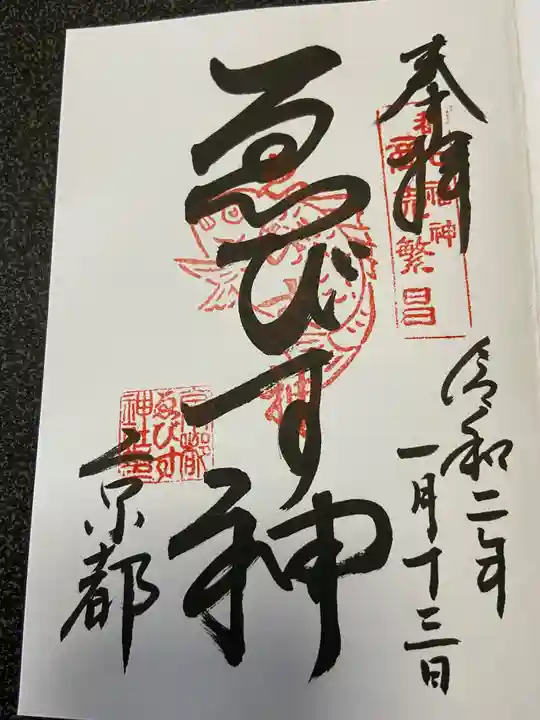 奉拝
商売繁昌
令和二年
一月十三日
ゑびす神
京都
京都
ゑびす
神社